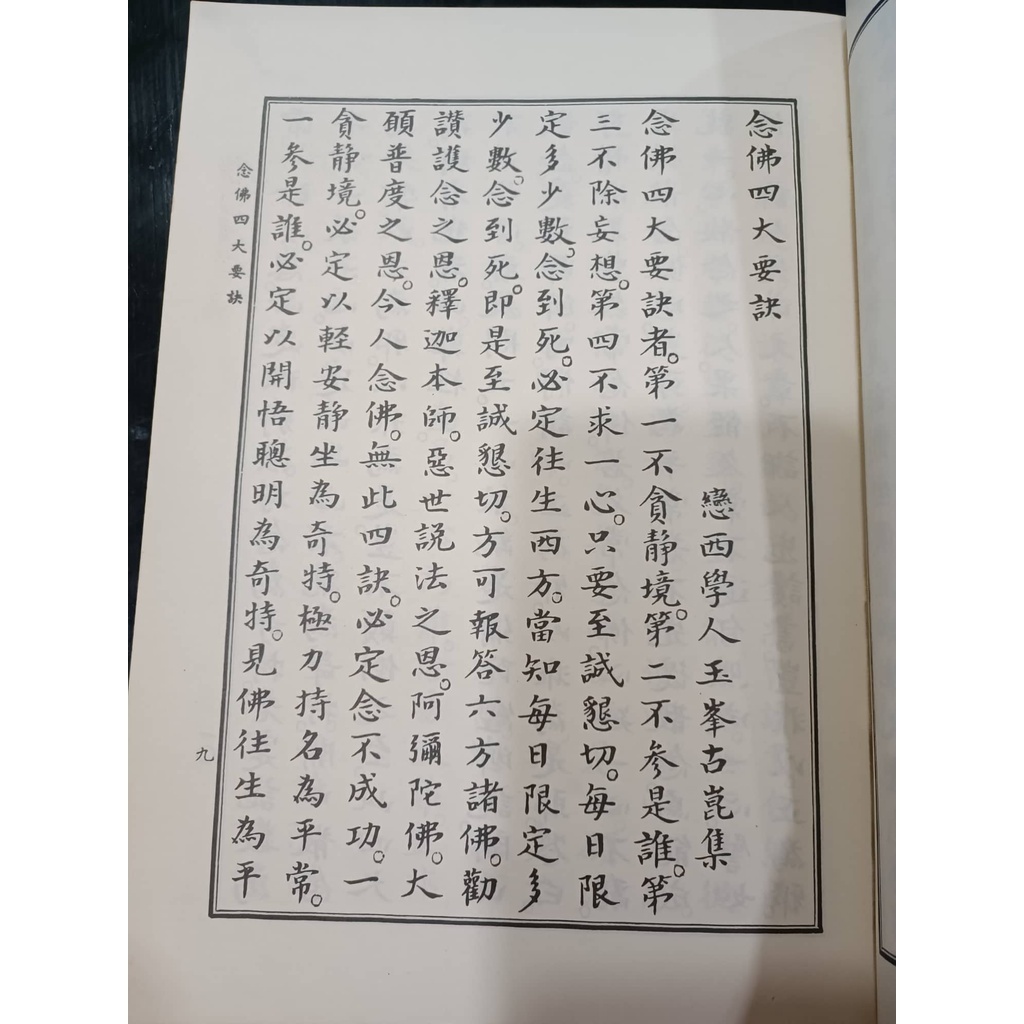 念佛四大要訣
戀西學人玉峯古崑集
念佛四大要訣者。第一不貪靜境。第二不參是誰。第
三不除妄想。第四不求一心。只要至誠懇切。每日限
定多少數。念到死。必定往生西方。當知每日限定多
少數。念到死。即是至誠懇切。方可報答六方諸佛。勸
讚護念之恩。釋迦本師。惡世説法之恩。阿彌陀佛。大
願普度之恩。今人念佛。無此四訣。必定念不成功。一
貪靜境。必定以輕安靜坐為奇特。極力持名為平常。
一參是誰。必定以開悟聰明為奇特。見佛往生為平
念佛四大要訣
九